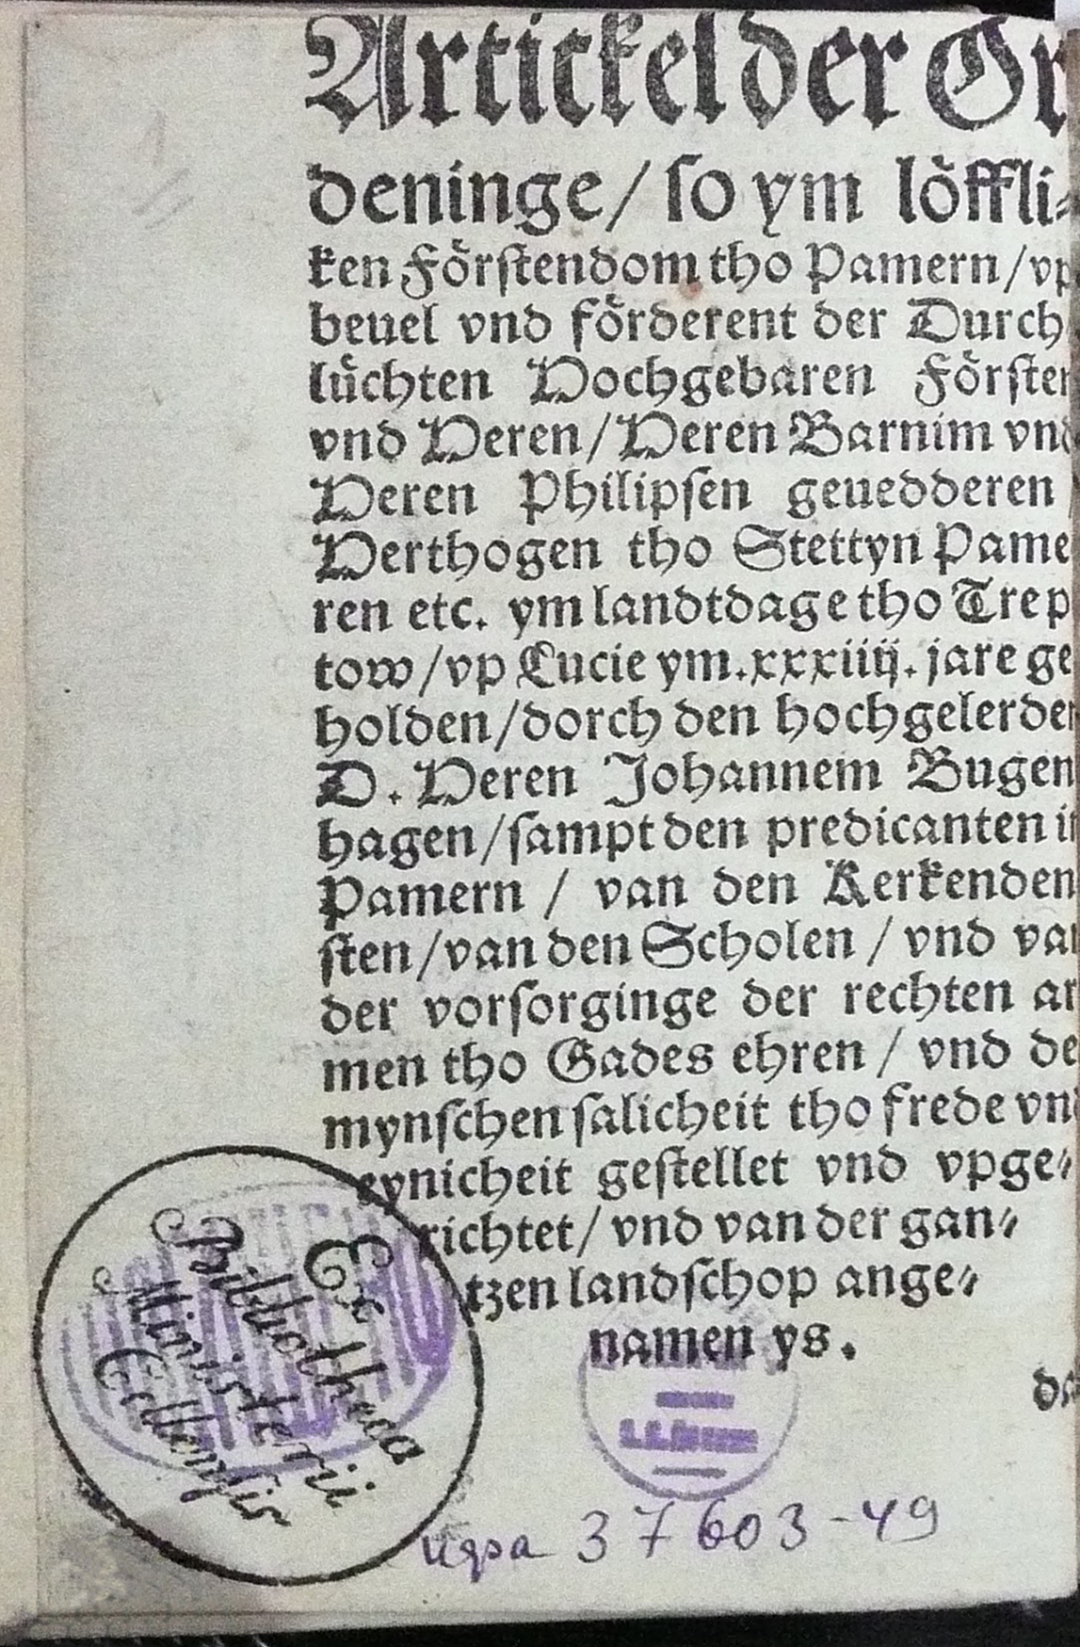 Artickel der Or
deninge/ so ym löffli⸗
ken Förstendom tho Pamern/vp
beuel vnd förderent der Durch
lüchten Hochgebaren Förster
vnd Heren/Heren Barnim vnd
Heren Philipsen geuedderen
Herthogen tho Stettyn Pame
ren etc. ym landtdage tho Trep
tow/vp Lucie ym.xxxiiij.jare ge
holden/dorch den hochgelerden
D. Heren Johannem Bugen
hagen/sampt den predicanten in
Pamern / van den Kerkenden
sten/van den Scholen / vnd van
der vorsorginge der rechten ar
men tho Gades ehren / vnd de
mynschen salicheit tho frede vnd
eynicheit gestellet vnd vpge⸗
richtet/ vnd van der gan⸗
tzen landschop ange⸗
namen ys.
Ex
Bibliotheca
Ministerii
Cellensis
37603-49